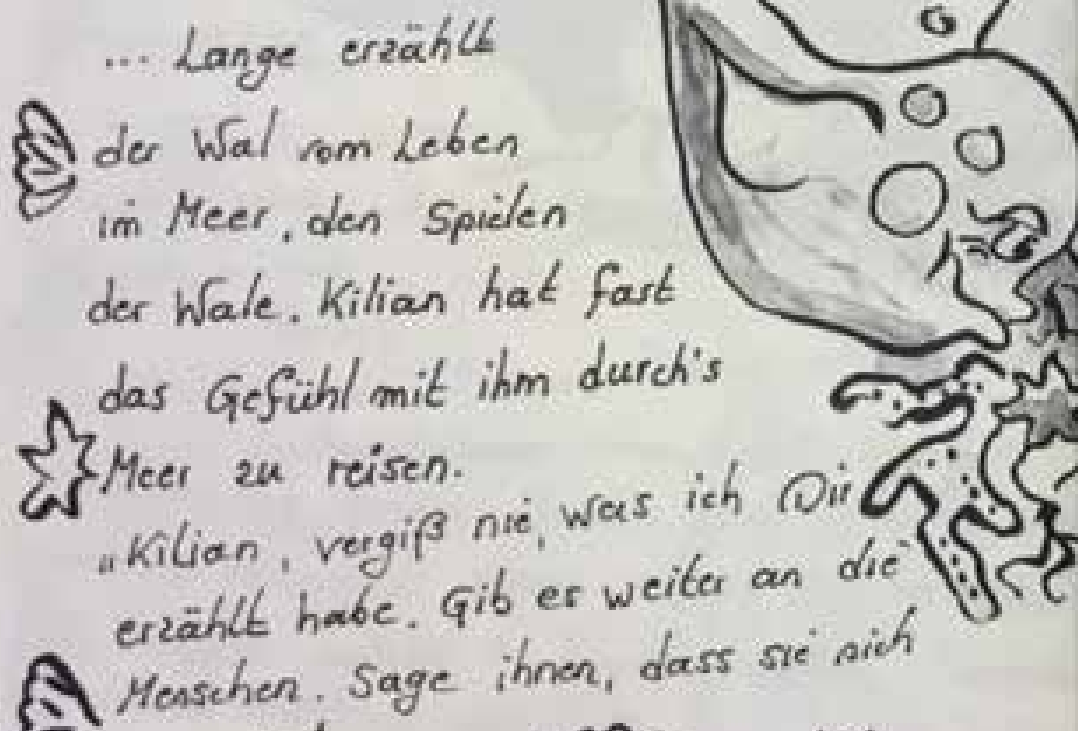 ... Lange erzählt
der Wal vom Leben
im Meer, den Spielen
der Wale. Kilian hat fast
das Gefühl mit ihm durch's
Meer zu reisen.
„Kilian, vergiß nie, was ich Dir
erzählt habe. Gib es weiter an die
Menschen. Sage ihnen, dass sie sich